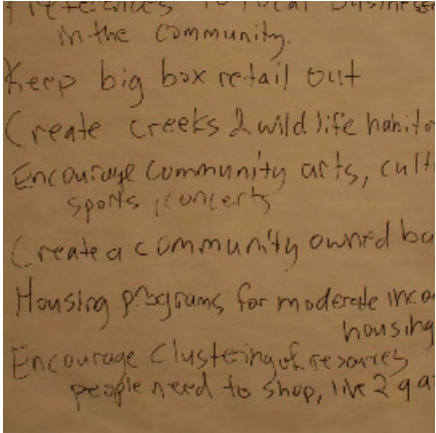 Preferences to local businesse
in the community.
Keep big box retail out
Create creeks & wild life habita
Encourage community arts, cult
sports, concerts
Create a community owned ba
Housing programs for moderate inco
housing
Encourage Clustering of resources
people need to shop, live